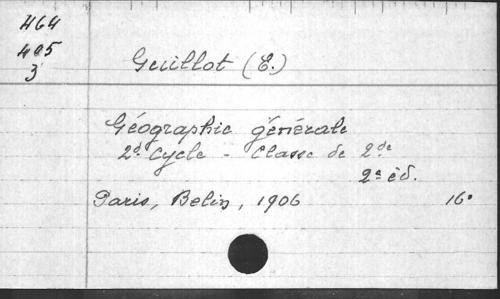 464
405
3
Guillot (E.)
Géographie générale
2d Cycle - Classe de 2de
2e éd.
Paris, Belin, 1906 16°